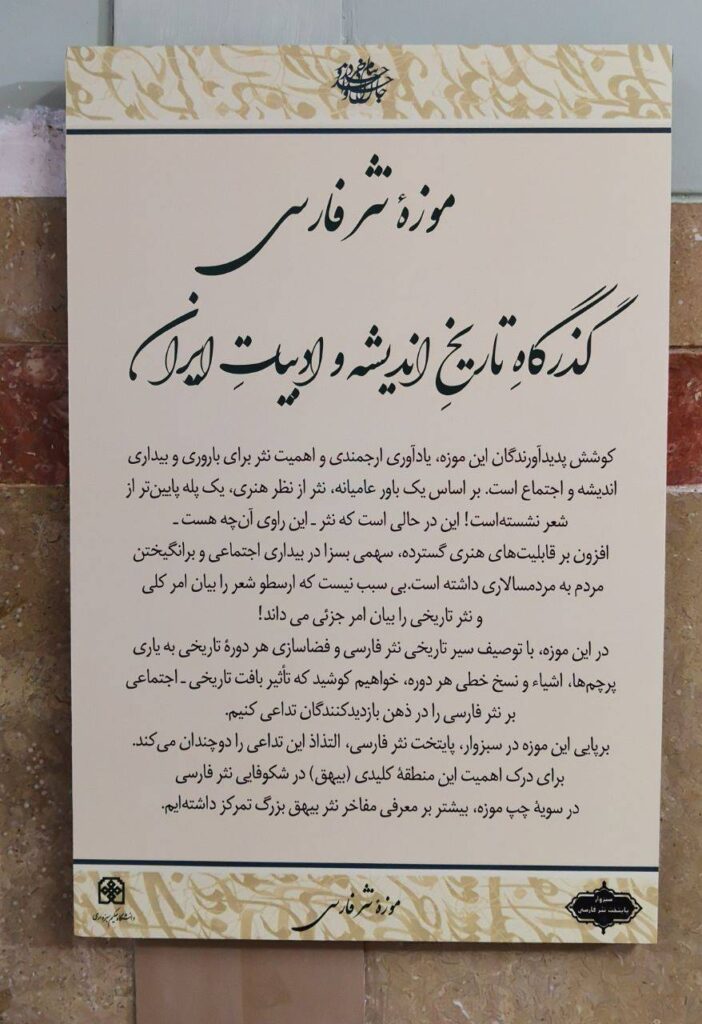 موزهٔ نثر فارسی
گذرگاهِ تاریخِ اندیشه و ادبیاتِ ایران
کوشش پدیدآورندگان این موزه، یادآوری ارجمندی و اهمیت نثر برای باروری و بیداری
اندیشه و اجتماع است. بر اساس یک باور عامیانه، نثر از نظر هنری، یک پله پایین‌تر از
شعر نشسته‌است! این در حالی است که نثر ـ این راوی آن‌چه هست ـ
افزون بر قابلیت‌های هنری گسترده، سهمی بسزا در بیداری اجتماعی و برانگیختن
مردم به مردمسالاری داشته است.بی سبب نیست که ارسطو شعر را بیان امر کلی
و نثر تاریخی را بیان امر جزئی می داند!
در این موزه، با توصیف سیر تاریخی نثر فارسی و فضاسازی هر دورهٔ تاریخی به یاری
پرچم‌ها، اشیاء و نسخ خطی هر دوره، خواهیم کوشید که تأثیر بافت تاریخی ـ اجتماعی
بر نثر فارسی را در ذهن بازدیدکنندگان تداعی کنیم.
برپایی این موزه در سبزوار، پایتخت نثر فارسی، التذاذ این تداعی را دوچندان می‌کند.
برای درک اهمیت این منطقهٔ کلیدی (بیهق) در شکوفایی نثر فارسی
در سویهٔ چپ موزه، بیشتر بر معرفی مفاخر نثر بیهق بزرگ تمرکز داشته‌ایم.
سبزوار
پایتخت نثر فارسی
موزهٔ نثر فارسی
دانشگاه حکیم سبزواری